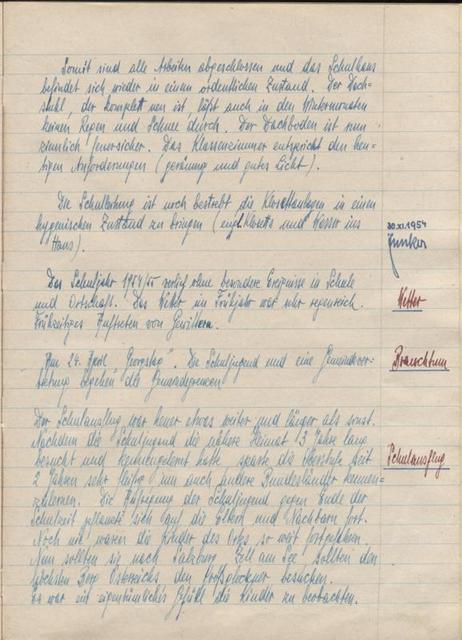 Somit sind alle Arbeiten abgeschlossen und das Schulhaus
befindet sich wieder in einem ordentlichen Zustand. Der Dach-
stuhl, der komplett neu ist, läßt auch in den Wintermonaten
keinen Regen und Schnee durch. Der Dachboden ist nun
ziemlich feuersicher. Das Klassenzimmer entspricht den heu-
tigen Anforderungen (geräumig und gutes Licht).
Die Schulleitung ist noch bestrebt die Klosettanlagen in einen
hygienischen Zustand zu bringen (engl. Klosetts und Wasser ins
Haus).
30.XI.1954
Junker
Das Schuljahr 1954/55 verlief ohne besondere Ereignisse in Schule
und Ortschaft. Das Wetter im Frühjahr war sehr regenreich.
Wetter
Frühzeitiges Auftreten von Gewittern.
Am 24. April "Georgstag". Die Schuljugend und eine Gemeindever-
Brauchtum
tretung "begehen" die Gemeindegrenzen.
Der Schulausflug war heuer etwas weiter und länger als sonst.
Nachdem die Schuljugend die nähere Heimat 13 Jahre lang
besucht und kennengelernt hatte sparte die Oberstufe seit
Schulausflug
2 Jahren sehr fleißig um auch andere Bundesländer kennen-
zulernen. Die Aufregung der Schuljugend gegen Ende der
Schulzeit pflanzte sich auf die Eltern und Nachbarn fort.
Noch nie waren die Kinder des Ortes so weit fortgefahren.
Nun sollten sie nach Salzburg, Zell am See, sollten den
höchsten Berg Österreichs den Großglockner besuchen.
Es war ein eigentümliches Gefühl die Kinder zu beobachten.